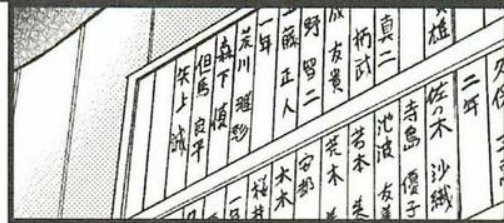 雄
真二
柄政
友貴
野 智二
藤 正人
一年
荒川 雅彦
森下 慎
但馬 良平
矢上 誠
二年
佐々木 沙織
寺島 優子
池波 友
若本 美
荒木
安部
水木
桜井
一